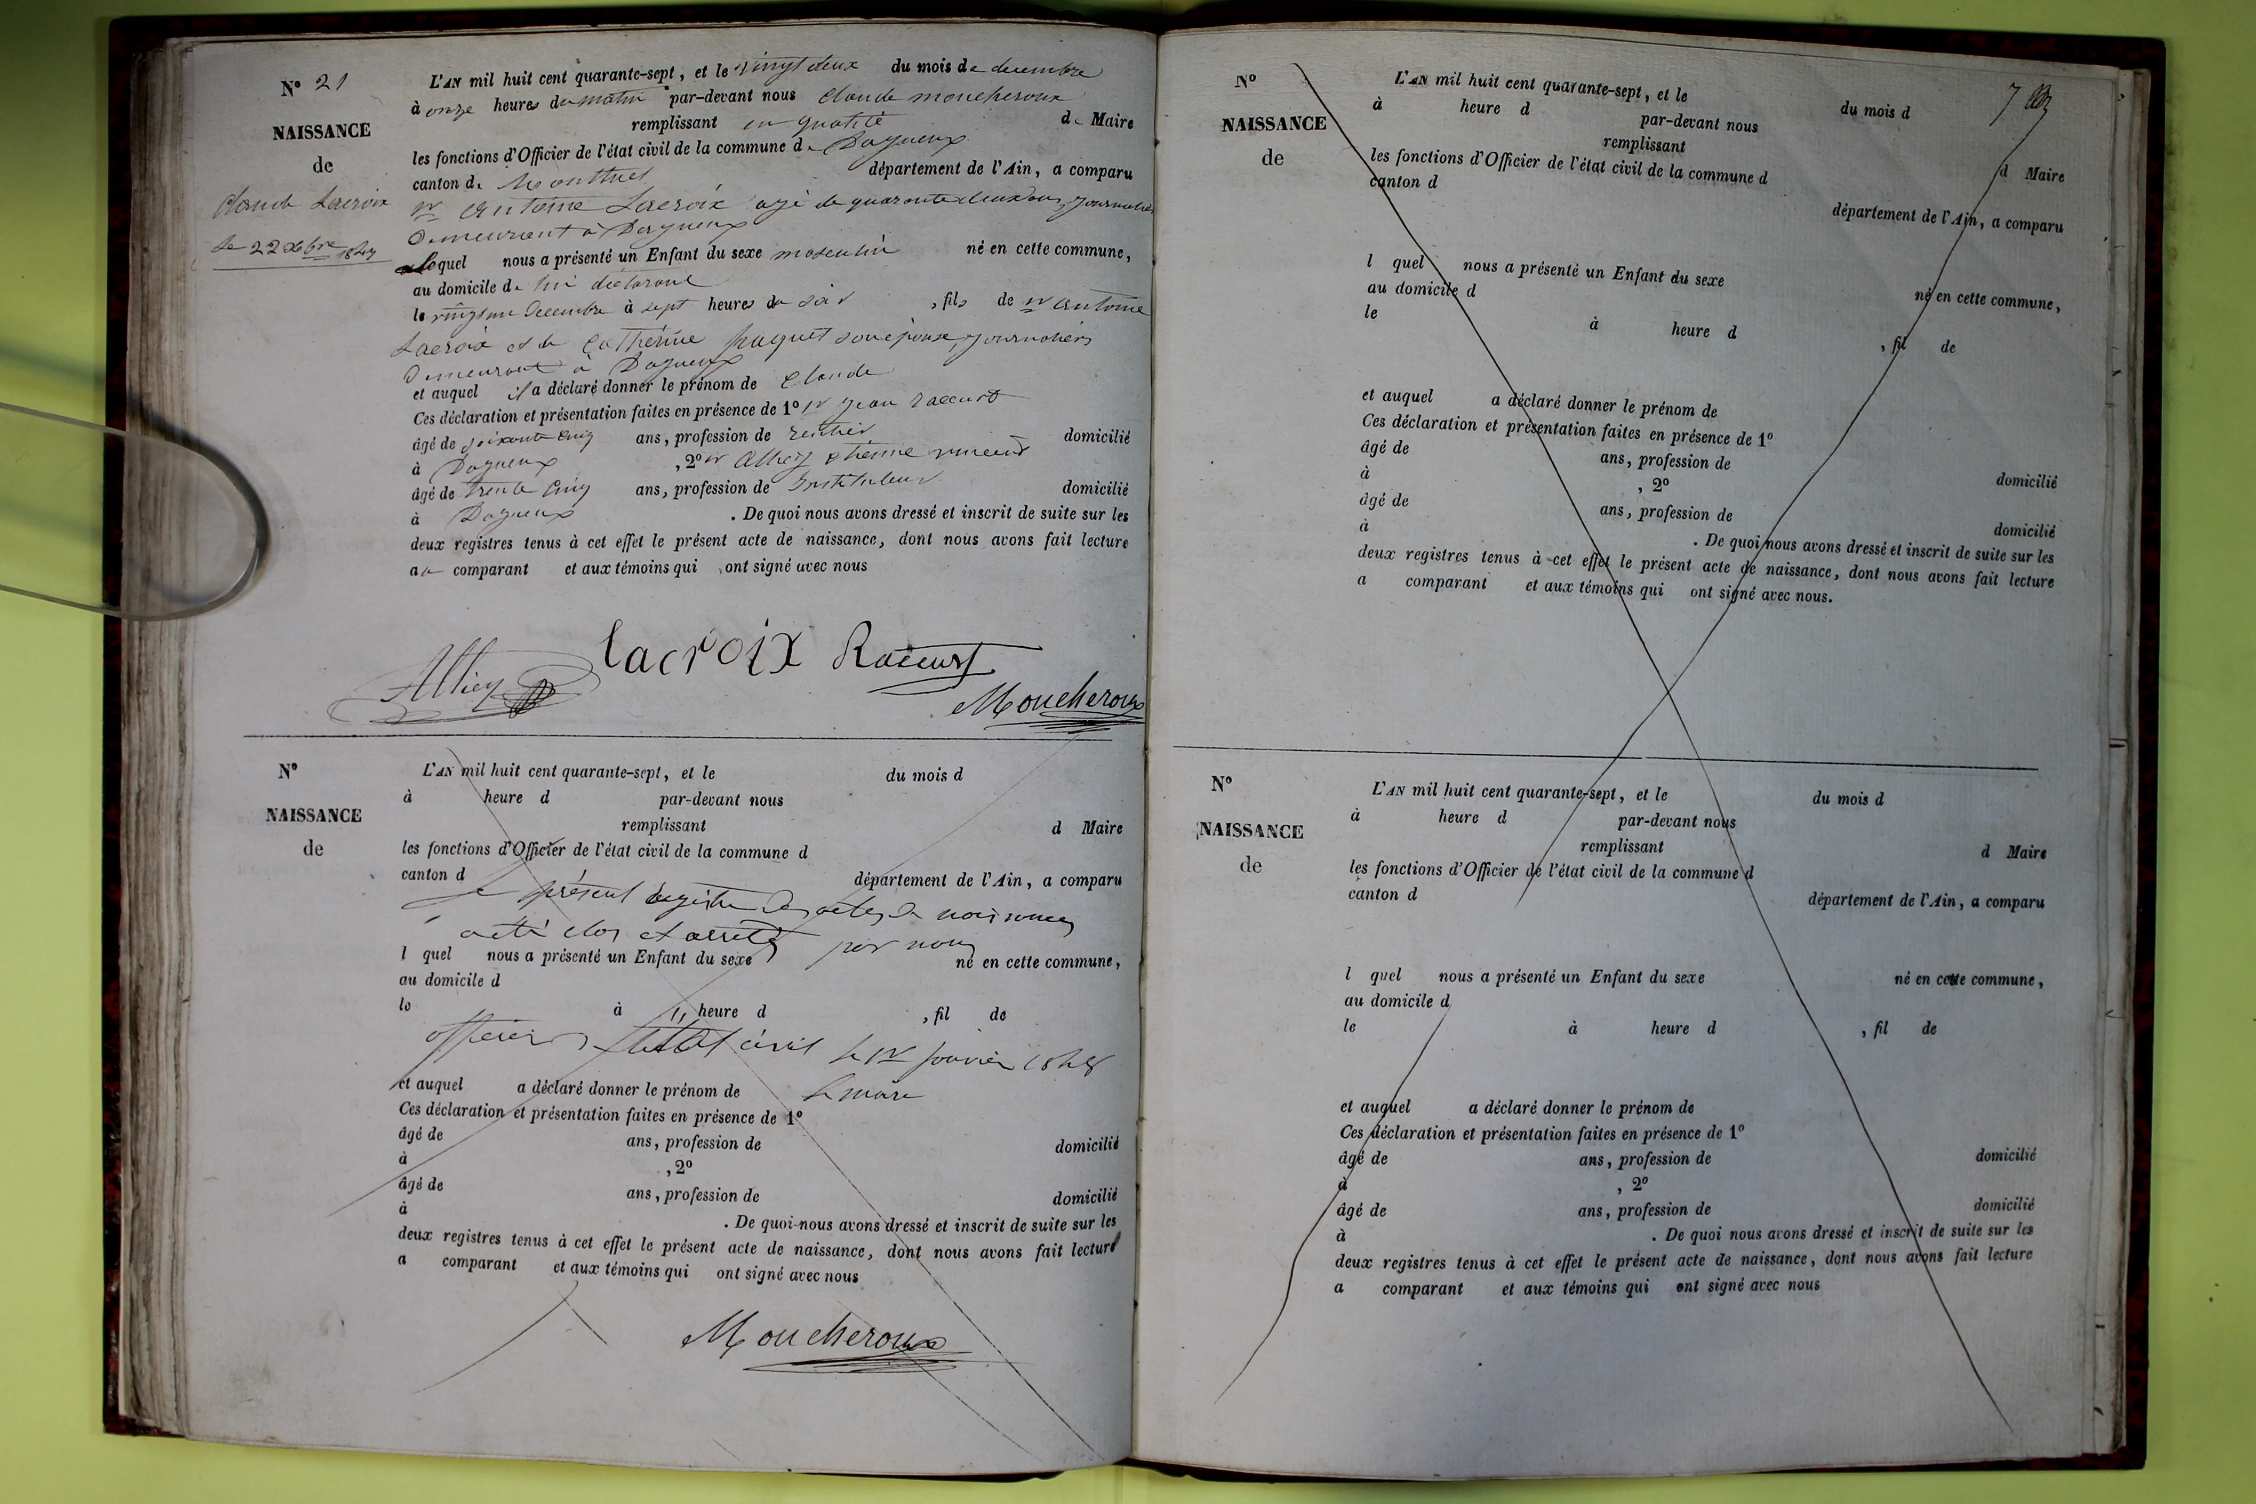 N° 21
NAISSANCE
de
Claude Lacroix
le 22 Xbre 1847
L'AN mil huit cent quarante-sept, et le vingt deux du mois de decembre
à onze heures du matin par-devant nous Claude Moucheroux
remplissant en qualité de Maire
les fonctions d'Officier de l'état civil de la commune de Dagneux
canton de Montluel département de l'Ain, a comparu
sr Antoine Lacroix agé de quarante deux ans, Journalier
Demeurant à Dagneux
lequel nous a présenté un Enfant du sexe masculin né en cette commune,
au domicile de lui déclarant
le vingt un Decembre à sept heures du soir, fils de sr Antoine
Lacroix et de Catherine paquet son épouse, journaliers
Demeurant à Dagneux
et auquel il a déclaré donner le prénom de Claude
Ces déclaration et présentation faites en présence de 1° sr Jean Raccurt
âgé de soixante cinq ans, profession de rentier domicilié
à Dagneux, 2° sr Athiey étienne vincent
âgé de trente cinq ans, profession de Instituteur domicilié
à Dagneux. De quoi nous avons dressé et inscrit de suite sur les
deux registres tenus à cet effet le présent acte de naissance, dont nous avons fait lecture
au comparant et aux témoins qui ont signé avec nous
lacroix Raccurt
Moucheroux
N°
NAISSANCE
de
L'AN mil huit cent quarante-sept, et le du mois d
à heure d par-devant nous
remplissant d Maire
les fonctions d'Officier de l'état civil de la commune d
canton d département de l'Ain, a comparu
Le présent registre des actes de naissances
a été clos et arrêté par nous
l quel nous a présenté un Enfant du sexe né en cette commune,
au domicile d
le à heure d, fil de
officier de l'état civil le 1er Janvier 1848
et auquel a déclaré donner le prénom de Le maire
Ces déclaration et présentation faites en présence de 1°
âgé de ans, profession de domicilié
à, 2°
âgé de ans, profession de domicilié
à. De quoi nous avons dressé et inscrit de suite sur les
deux registres tenus à cet effet le présent acte de naissance, dont nous avons fait lecture
a comparant et aux témoins qui ont signé avec nous
Moucheroux
N°
NAISSANCE
de
L'AN mil huit cent quarante-sept, et le du mois d
à heure d par-devant nous
remplissant d Maire
les fonctions d'Officier de l'état civil de la commune d
canton d département de l'Ain, a comparu
l quel nous a présenté un Enfant du sexe né en cette commune,
au domicile d
le à heure d, fil de
et auquel a déclaré donner le prénom de
Ces déclaration et présentation faites en présence de 1°
âgé de ans, profession de domicilié
à, 2°
âgé de ans, profession de domicilié
à. De quoi nous avons dressé et inscrit de suite sur les
deux registres tenus à cet effet le présent acte de naissance, dont nous avons fait lecture
a comparant et aux témoins qui ont signé avec nous.
N°
NAISSANCE
de
L'AN mil huit cent quarante-sept, et le du mois d
à heure d par-devant nous
remplissant d Maire
les fonctions d'Officier de l'état civil de la commune d
canton d département de l'Ain, a comparu
l quel nous a présenté un Enfant du sexe né en cette commune,
au domicile d
le à heure d, fil de
et auquel a déclaré donner le prénom de
Ces déclaration et présentation faites en présence de 1°
âgé de ans, profession de domicilié
à, 2°
âgé de ans, profession de domicilié
à. De quoi nous avons dressé et inscrit de suite sur les
deux registres tenus à cet effet le présent acte de naissance, dont nous avons fait lecture
a comparant et aux témoins qui ont signé avec nous